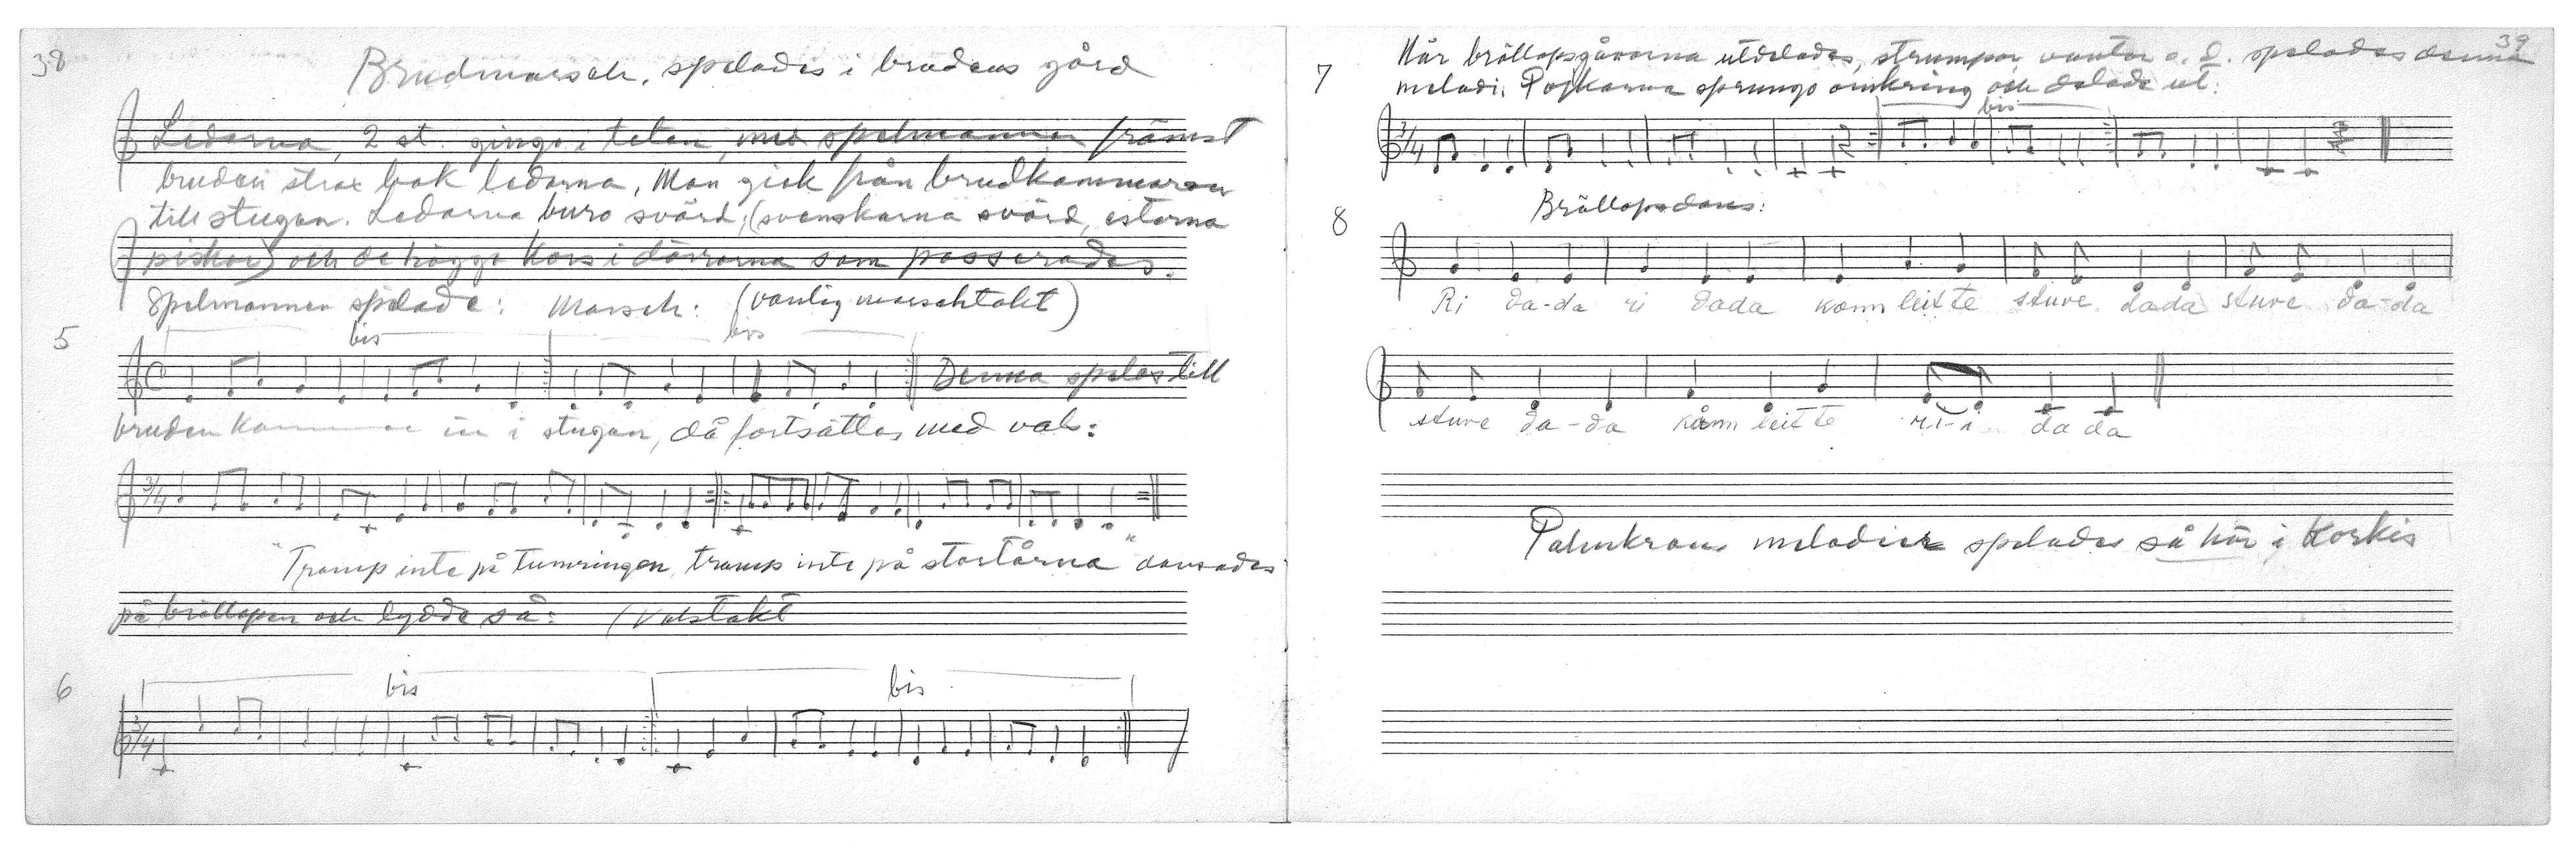 38
Brudmarsch, spelades i brudens gård
Ledarna, 2 st. gingo i teten, med spelmannen främst
bruden strax bak ledarna, Man gick från brudkammaren
till stugan. Ledarna buro svärd, (svenskarna svärd, esterna
piskor) och de höggo kors i dörrarna som passerades.
Spelmannen spelade: Marsch: (vanlig marschtakt)
5
bis
bis
C
Denna spelas till
bruden kommer in i stugan, då fortsättes med vals:
3/4
"Tramp inte på tumringen, tramp inte på stortårna" dansades
på bröllopen och lydde så: (Valstakt
6
bis
bis
3/4
39
7
När bröllopsgåvorna utdelades, strumpor, vantar o. d. spelades denna
melodi. Pojkarna sprungo omkring och delade ut:
bis
3/4
Bröllopsdans:
8
Ri da-da ri dada komm leitte sture dada sture da-da
sture da-da komm leitte ri-i da da
melodier spelades så här i Korkis